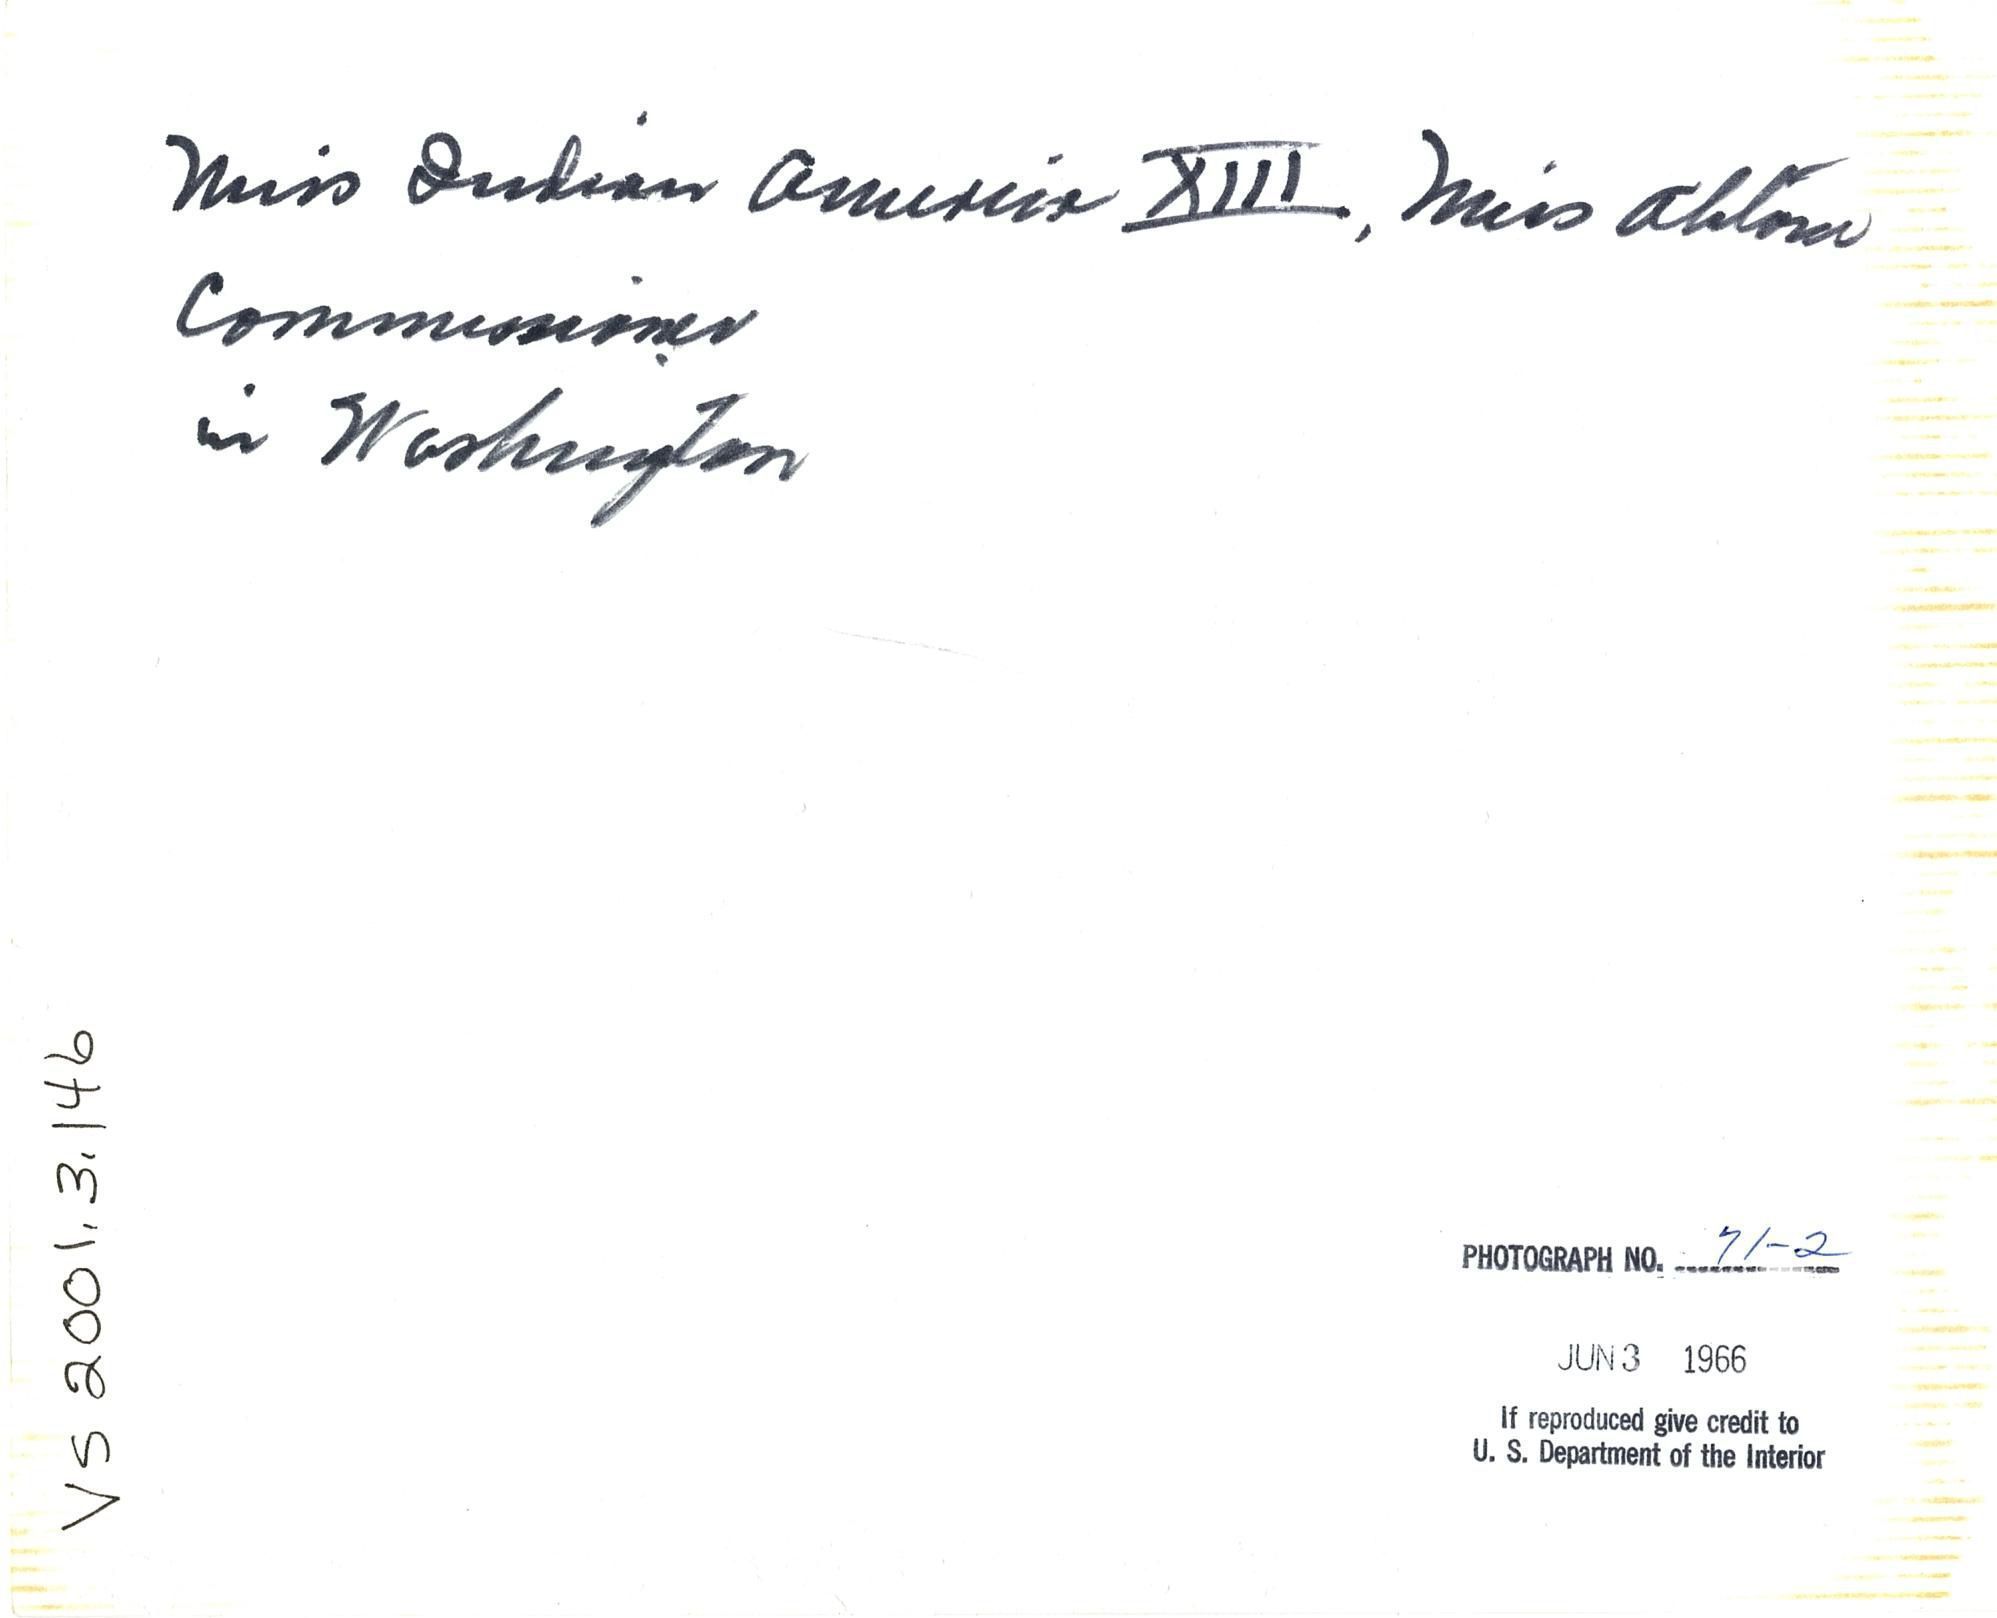 Miss Indian America XIII, Miss Ahtone
Commissioner
in Washington
VS 2001.3.146
PHOTOGRAPH NO. 71-2
JUN 3 1966
If reproduced give credit to
U. S. Department of the Interior